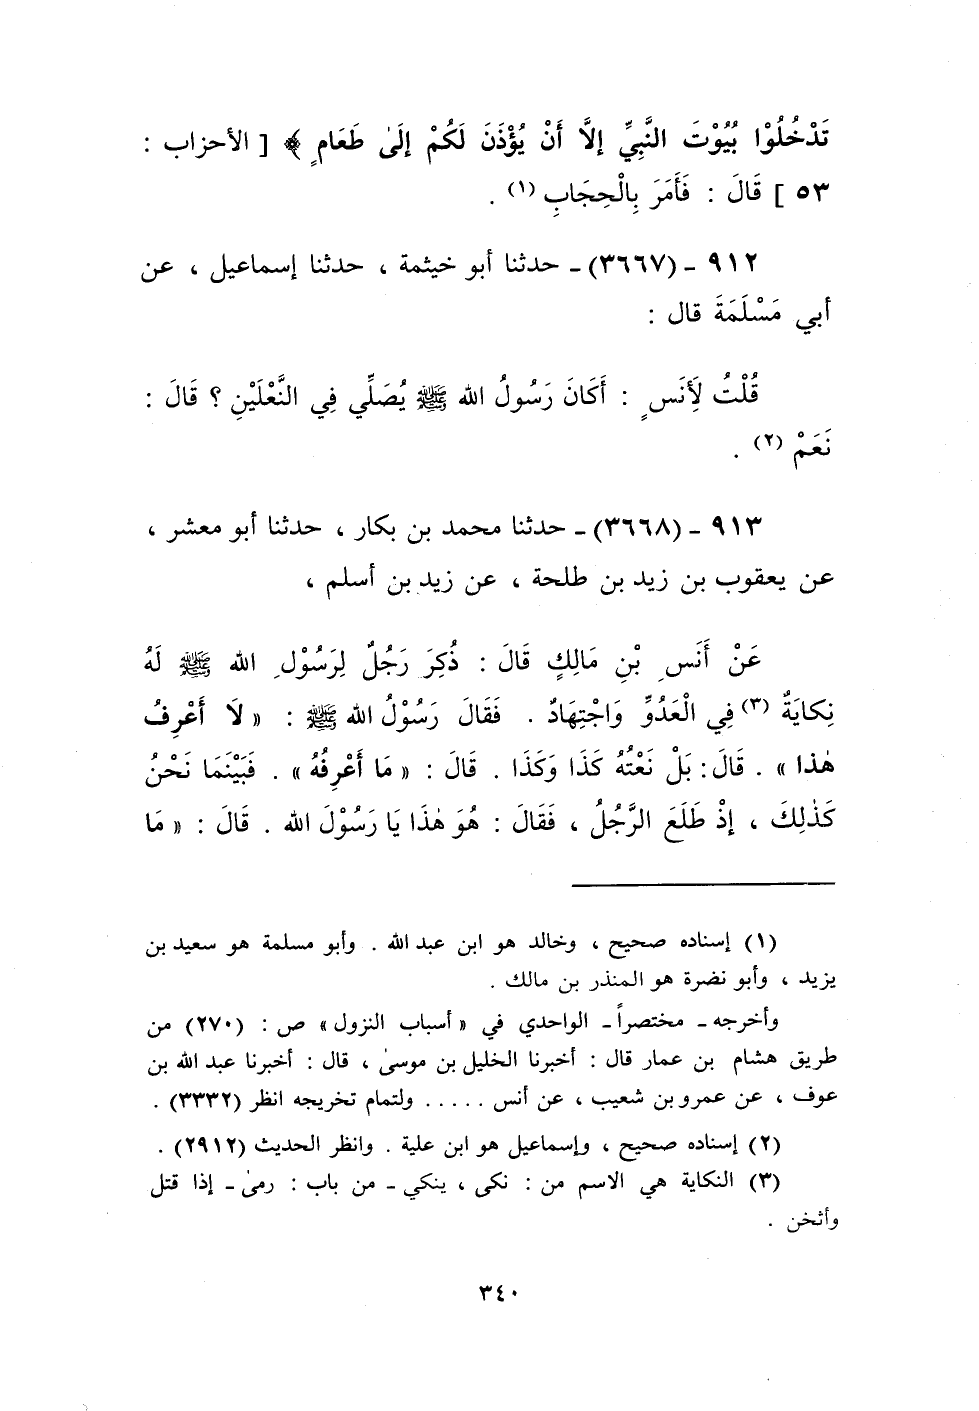 تَدْخُلُوْا بُيُوْتَ النَّبِيِّ إلاَّ أَنْ يُؤْذَنَ لَكُمْ إلَىٰ طَعَامٍ ﴾ [ الأحزاب :
٥٣ ] قَالَ : فَأَمَرَ بِالْحِجَابِ (١) .
٩١٢ ـ (٣٦٦٧) ـ حدثنا أبو خيثمة ، حدثنا إسماعيل ، عن
أبي مَسْلَمَةَ قال :
قُلْتُ لِأَنَسٍ : أَكَانَ رَسُولُ الله ﷺ يُصَلِّي فِي النَّعْلَيْنِ ؟ قَالَ :
نَعَمْ (٢) .
٩١٣ ـ (٣٦٦٨) ـ حدثنا محمد بن بكار ، حدثنا أبو معشر ،
عن يعقوب بن زيد بن طلحة ، عن زيد بن أسلم ،
عَنْ أَنَسِ بْنِ مَالِكٍ قَالَ : ذُكِرَ رَجُلٌ لِرَسُوْلِ الله ﷺ لَهُ
نِكايَةٌ (٣) فِي الْعَدُوِّ وَاجْتِهَادٌ . فَقَالَ رَسُوْلُ الله ﷺ : « لَا أَعْرِفُ
هٰذا » . قَالَ: بَلْ نَعْتُهُ كَذَا وَكَذَا . قَالَ : « مَا أَعْرِفُهُ » . فَبَيْنَمَا نَحْنُ
كَذٰلِكَ ، إذْ طَلَعَ الرَّجُلُ ، فَقَالَ : هُوَ هٰذَا يَا رَسُوْلَ الله . قَالَ : « مَا
(١) إسناده صحيح ، وخالد هو ابن عبد الله . وأبو مسلمة هو سعيد بن
يزيد ، وأبو نضرة هو المنذر بن مالك .
وأخرجه ـ مختصراً ـ الواحدي في « أسباب النزول » ص : (٢٧٠) من
طريق هشام بن عمار قال : أخبرنا الخليل بن موسىٰ ، قال : أخبرنا عبد الله بن
عوف ، عن عمرو بن شعيب ، عن أنس ..... ولتمام تخريجه انظر (٣٣٣٢) .
(٢) إسناده صحيح ، وإسماعيل هو ابن علية . وانظر الحديث (٢٩١٢) .
(٣) النكاية هي الاسم من : نكى ، ينكي ـ من باب : رمىٰ ـ إذا قتل
وأثخن .
٣٤٠